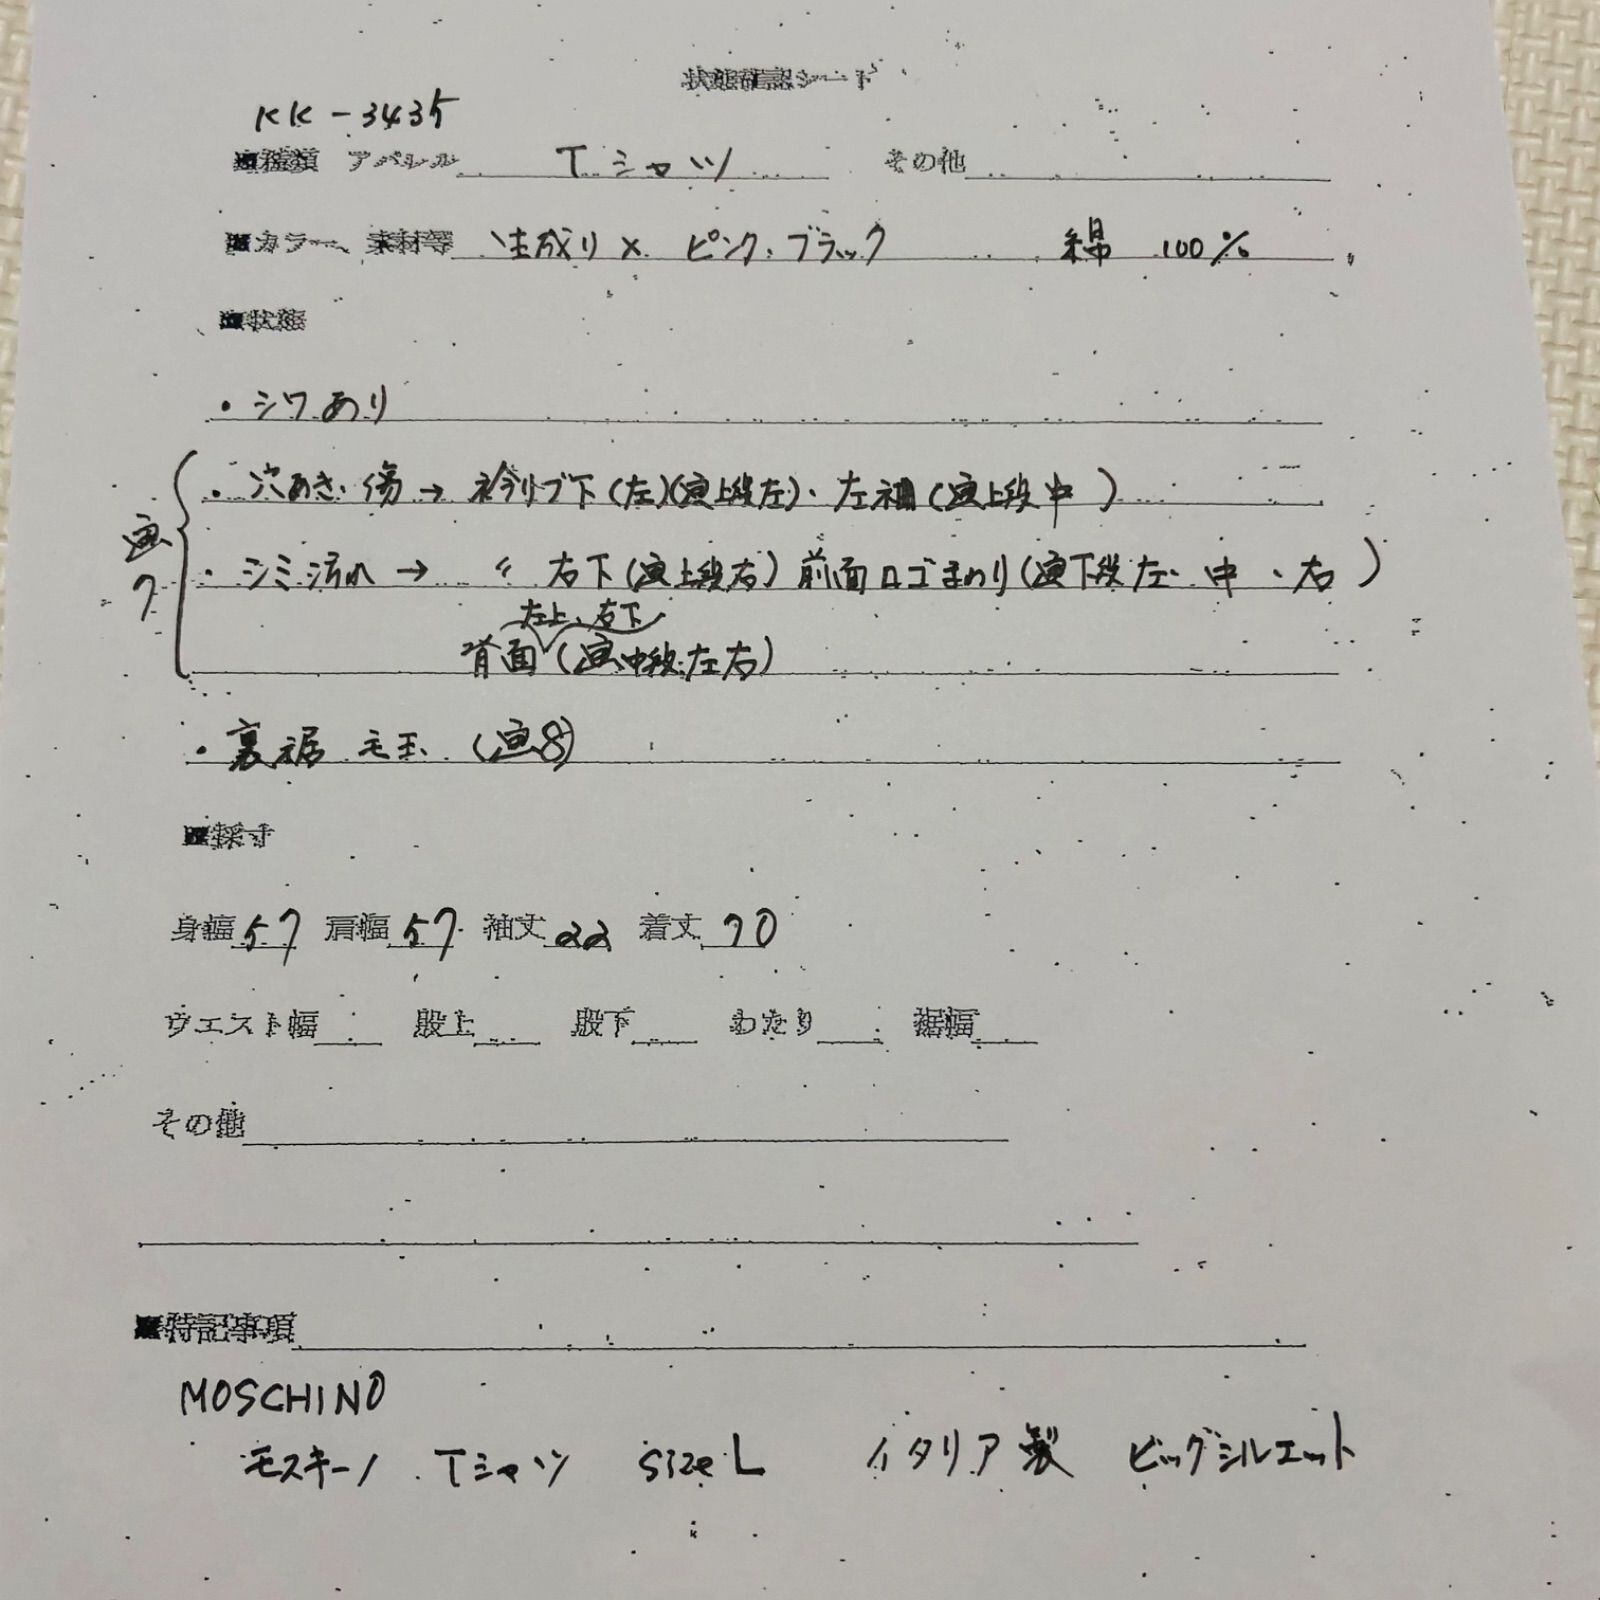 状態確認シート
KK-3435
■種類 アパレル Tシャツ その他
■カラー、素材等 生成り×ピンク・ブラック 綿 100%
■状態
・シワあり
・穴あき・傷→衿リブ下(左)(画上段左)・左袖(画上段中)
画7
・シミ汚れ→ 〃 右下(画上段右)前面ロゴまわり(画下段左・中・右)
左上、右下
背面(画中段・左右)
・裏裾 毛玉 (画8)
■採寸
身幅57 肩幅57 袖丈22 着丈70
ウエスト幅 股上 股下 わたり 裾幅
その他
■特記事項
MOSCHINO
モスキーノ Tシャツ size L イタリア製 ビッグシルエット